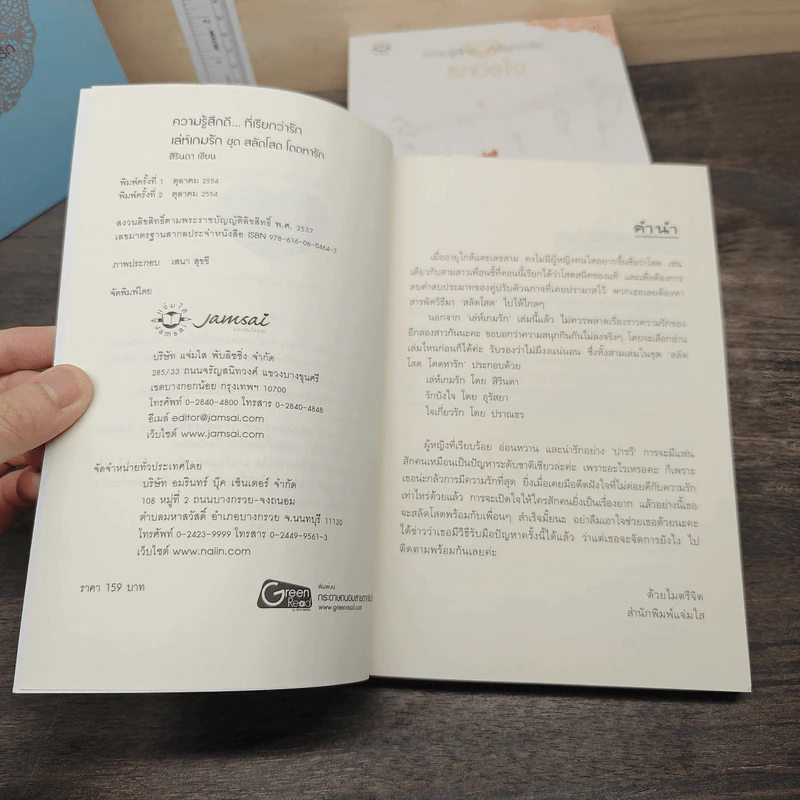 ความรู้สึกดี... ที่เรียกว่ารัก
เล่ห์เกมรัก ชุด สลัดโสด โดดหารัก
สิรินดา เขียน
พิมพ์ครั้งที่ 1 ตุลาคม 2554
พิมพ์ครั้งที่ 2 ตุลาคม 2554
สงวนลิขสิทธิ์ตามพระราชบัญญัติลิขสิทธิ์ พ.ศ. 2537
เลขมาตรฐานสากลประจำหนังสือ ISBN 978-616-06-0464-7
ภาพประกอบ เสนา สุขขี
จัดพิมพ์โดย
แจ่มใส
JAMSAI
Jamsai
บริษัท แจ่มใส พับลิชชิ่ง จำกัด
285/33 ถนนจรัญสนิทวงศ์ แขวงบางขุนศรี
เขตบางกอกน้อย กรุงเทพฯ 10700
โทรศัพท์ 0-2840-4800 โทรสาร 0-2840-4848
อีเมล์ editor@jamsai.com
เว็บไซต์ www.jamsai.com
จัดจำหน่ายทั่วประเทศโดย
บริษัท อมรินทร์ บุ๊ค เซ็นเตอร์ จำกัด
108 หมู่ที่ 2 ถนนบางกรวย-จงถนอม
ตำบลมหาสวัสดิ์ อำเภอบางกรวย จ.นนทบุรี 11130
โทรศัพท์ 0-2423-9999 โทรสาร 0-2449-9561-3
เว็บไซต์ www.naiin.com
ราคา 159 บาท
Green
Read
พิมพ์บน
กระดาษถนอมสายตา
www.greenread.com
คำนำ
เมื่ออายุใกล้แตะเลขสาม คงไม่มีผู้หญิงคนใดอยากขึ้นชื่อว่าโสด เช่น
เดียวกับสามสาวเพื่อนซี้ที่ตอนนี้เรียกได้ว่าโสดสนิทของแท้ และเพื่อต้องการ
ลบคำสบประมาทของคู่ปรับตัวฉกาจที่เคยปรามาสไว้ พวกเธอเลยต้องหา
สารพัดวิธีมา 'สลัดโสด' ไปให้ไกลๆ
นอกจาก 'เล่ห์เกมรัก' เล่มนี้แล้ว ไม่ควรพลาดเรื่องราวความรักของ
อีกสองสาวกันนะคะ ขอบอกว่าความสนุกกินกันไม่ลงจริงๆ โดยจะเลือกอ่าน
เล่มไหนก่อนก็ได้ค่ะ รับรองว่าไม่มีงงแน่นอน ซึ่งทั้งสามเล่มในชุด 'สลัด
โสด โดดหารัก' ประกอบด้วย
เล่ห์เกมรัก โดย สิรินดา
รักบังใจ โดย อุรัสยา
ใจเกี่ยวรัก โดย ปราณธร
ผู้หญิงที่เรียบร้อย อ่อนหวาน และน่ารักอย่าง 'ปารวี' การจะมีแฟน
สักคนเหมือนเป็นปัญหาระดับชาติเชียวล่ะค่ะ เพราะอะไรเหรอคะ ก็เพราะ
เธอน่ะกลัวการมีความรักที่สุด ยิ่งเมื่อเคยมีอดีตฝังใจที่ไม่ค่อยดีกับความรัก
เท่าไหร่ด้วยแล้ว การจะเปิดใจให้ใครสักคนยิ่งเป็นเรื่องยาก แล้วอย่างนี้เธอ
จะสลัดโสดพร้อมกับเพื่อนๆ สำเร็จมั้ยนะ อย่าลืมเอาใจช่วยเธอด้วยนะคะ
ได้ข่าวว่าเธอมีวิธีรับมือปัญหาครั้งนี้ได้แล้ว ว่าแต่เธอจะจัดการยังไง ไป
ติดตามพร้อมกันเลยค่ะ
ด้วยไมตรีจิต
สำนักพิมพ์แจ่มใส
รักบังใจ